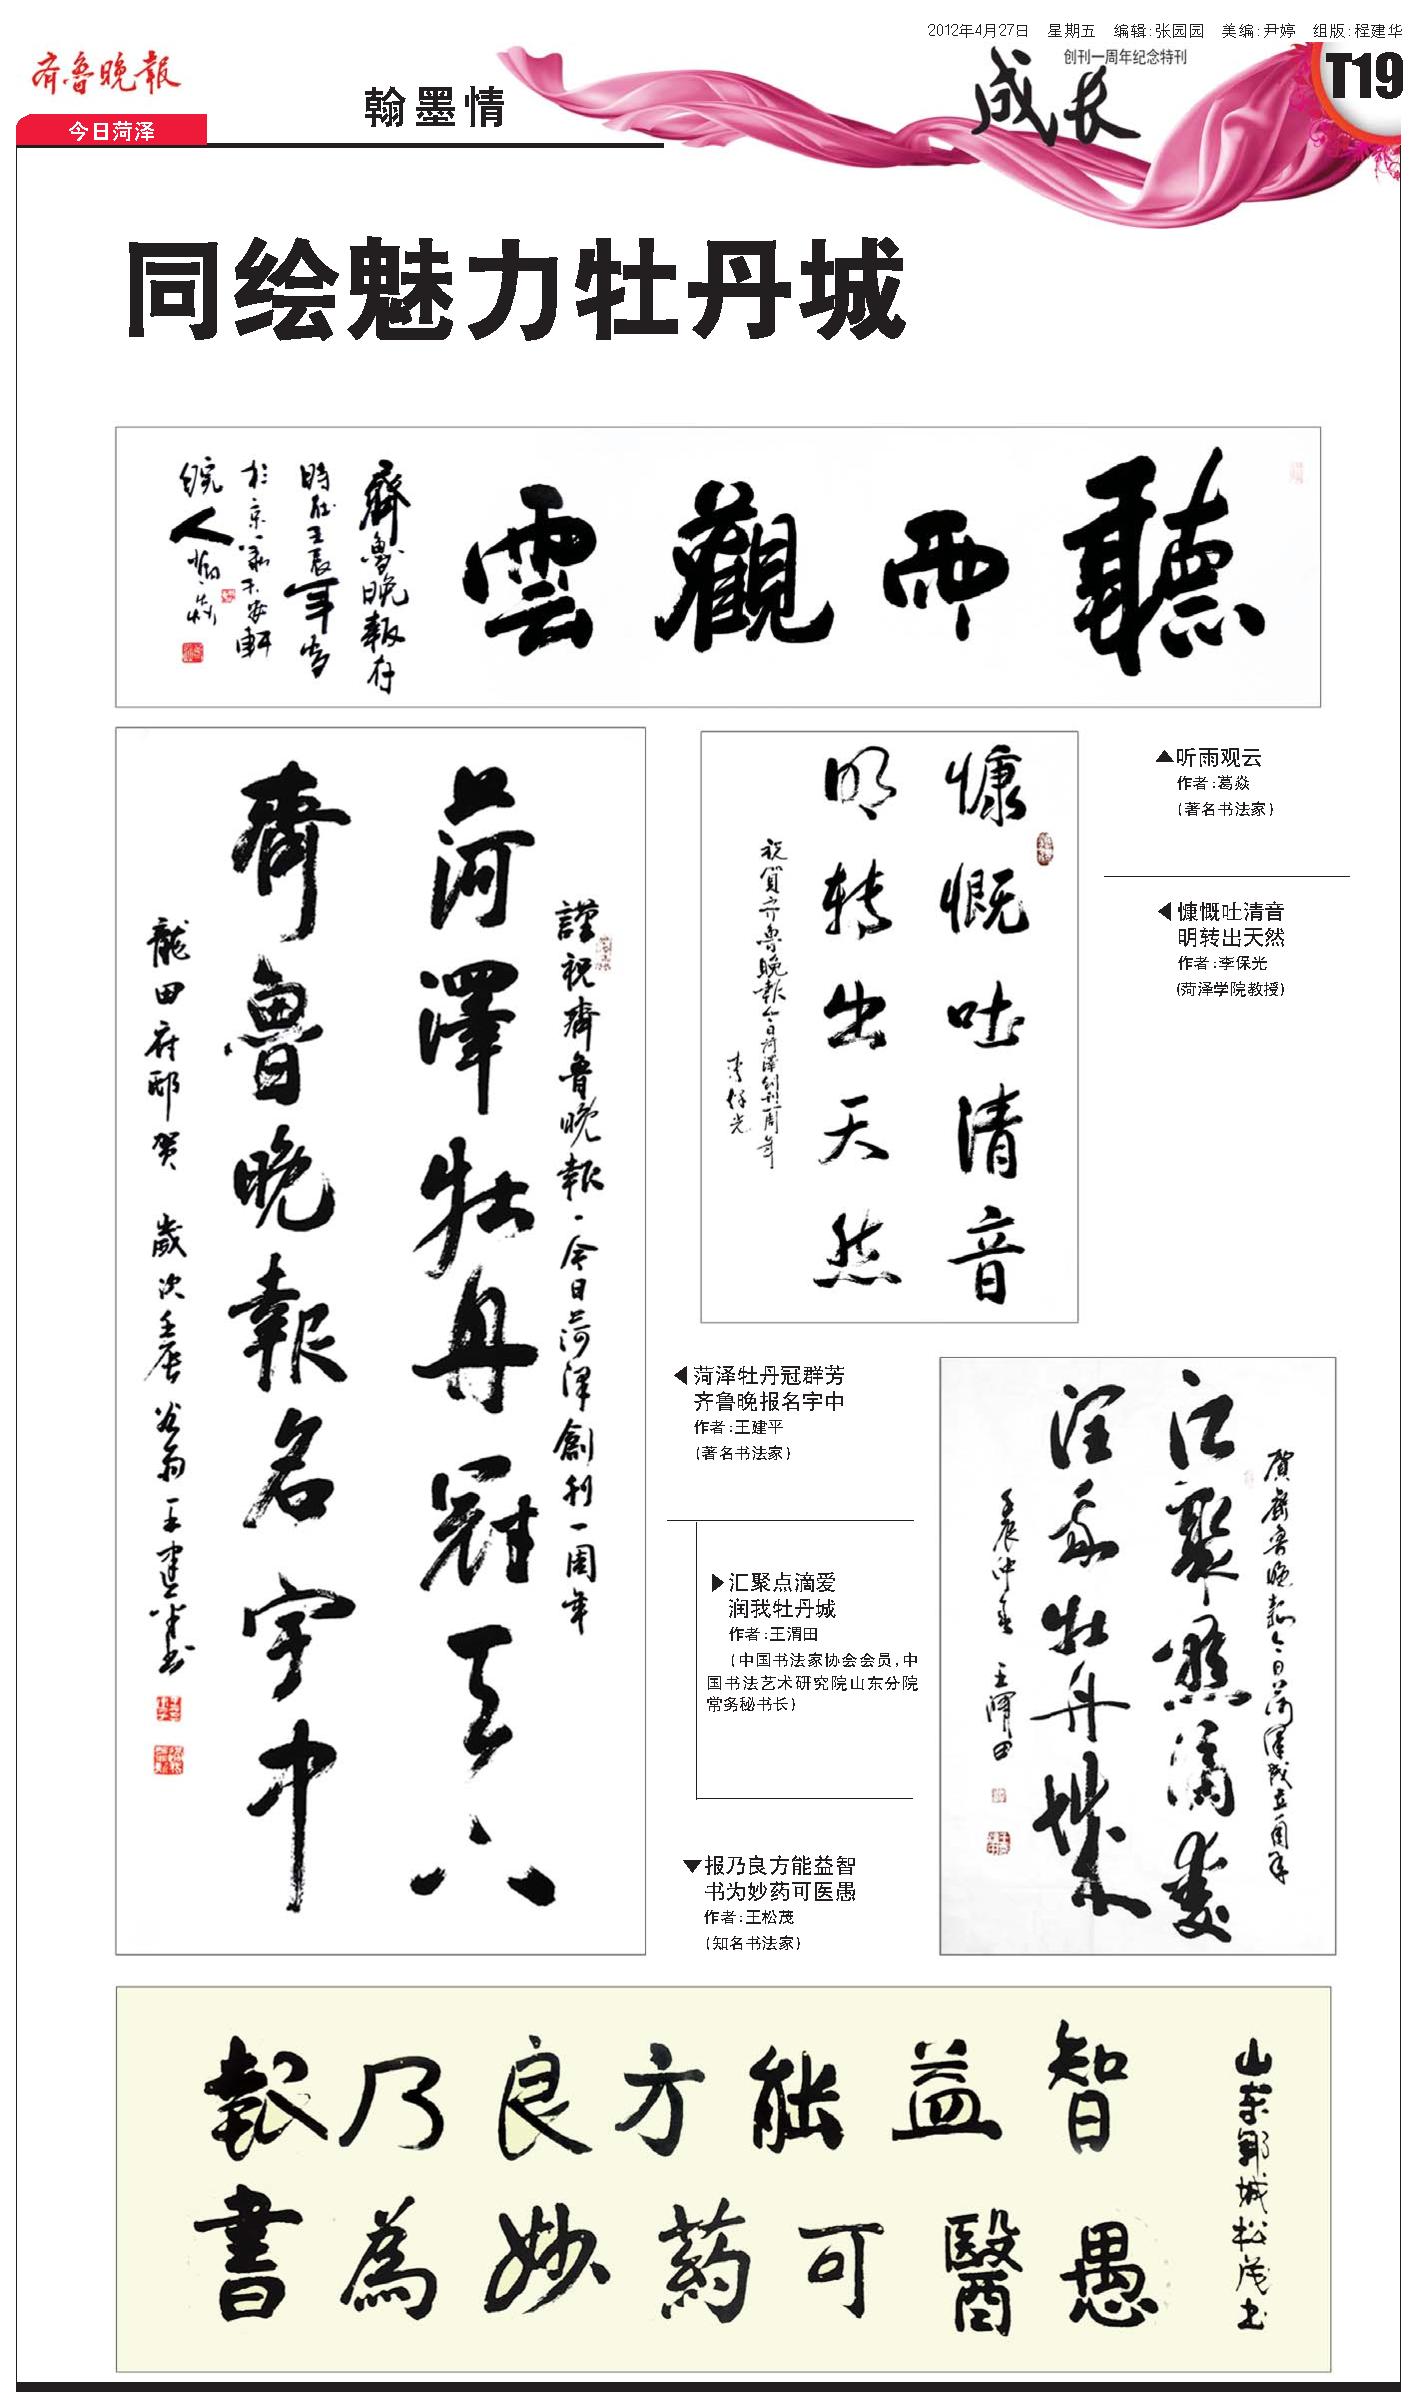 2012年4月27日 星期五 编辑:张园园 美编:尹婷 组版:程建华
齐鲁晚报
今日菏泽
翰墨情
创刊一周年纪念特刊
成长
T19
同绘魅力牡丹城
聽雨觀雲
齊魯晚報存
時在壬辰年
▲听雨观云
作者:葛焱
(著名书法家)
慷慨吐清音
明转出天然
祝賀齐魯晚報今日菏澤创刊一周年
李保光
◀慷慨吐清音
明转出天然
作者:李保光
(菏泽学院教授)
謹祝齊魯晚報·今日菏泽創刊一周年
菏澤牡丹冠天六
齊魯晚報名宇中
歲次壬辰
王建平书
◀菏泽牡丹冠群芳
齐鲁晚报名宇中
作者:王建平
(著名书法家)
賀齊魯晚報今日菏澤成立周年
汇聚點滴愛
润我牡丹城
壬辰仲春 王渭田
▶汇聚点滴爱
润我牡丹城
作者:王渭田
(中国书法家协会会员,中
国书法艺术研究院山东分院
常务秘书长)
▼报乃良方能益智
书为妙药可医愚
作者:王松茂
(知名书法家)
報乃良方能益智
書為妙药可醫愚
山东鄆城松茂书